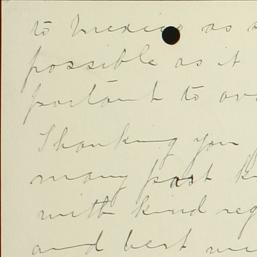 to Mexico as s
possible as it
portant to ov
Thanking you
many past k
with kind reg
and best wi